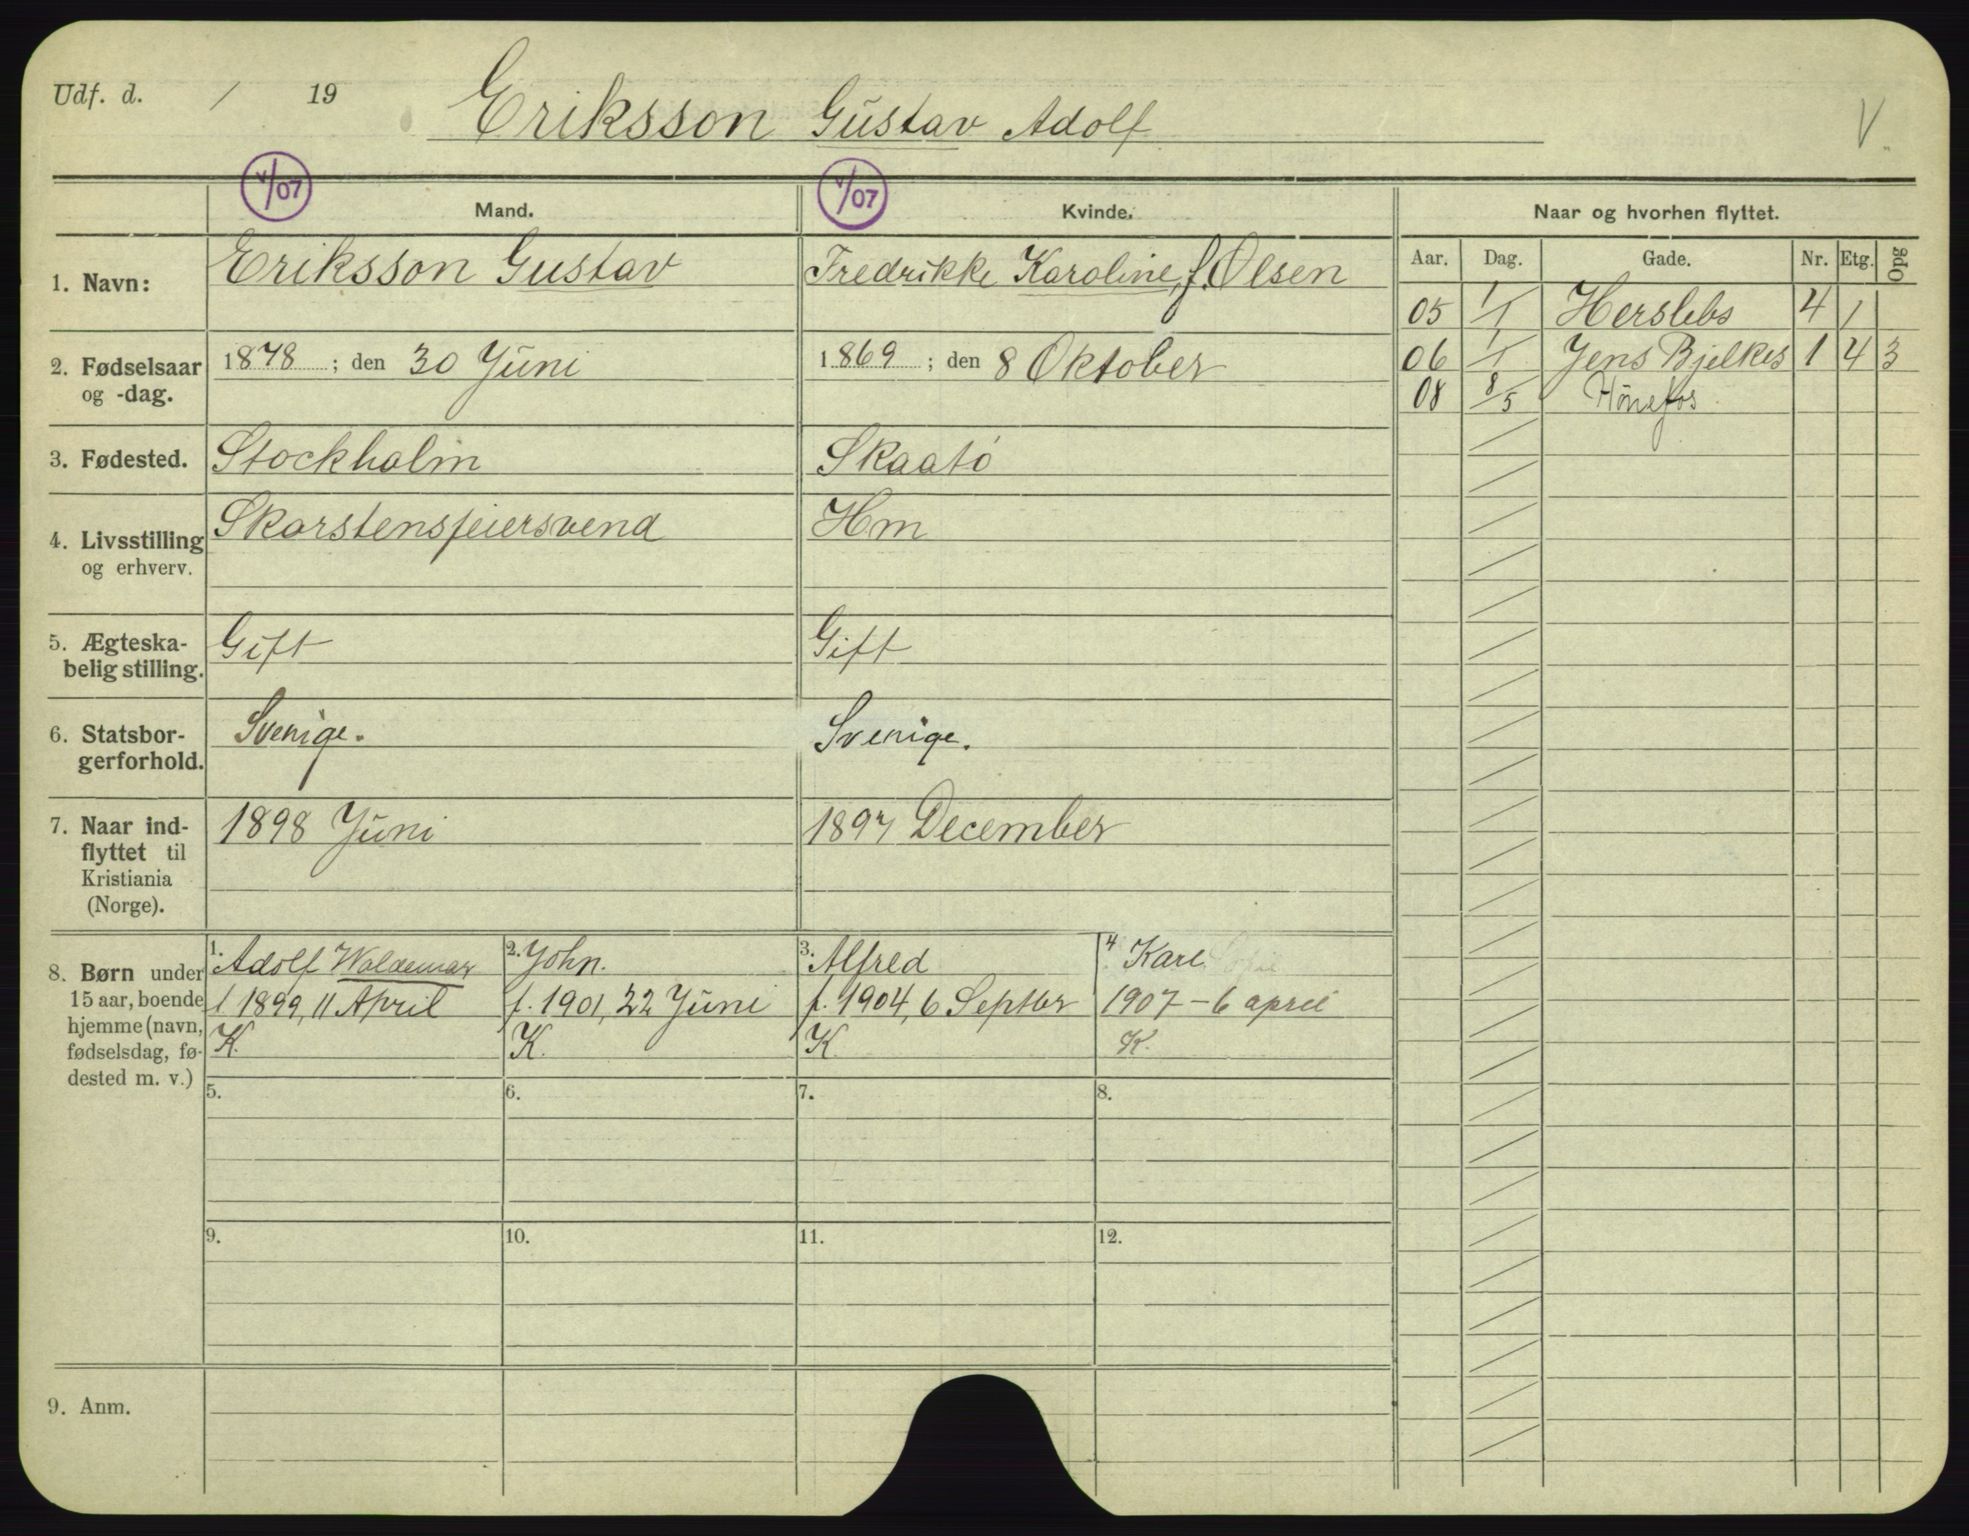 Udf. d. / 19 Eriksson Gustav Adolf V.
V/07 V/07
Mand. Kvinde. Naar og hvorhen flyttet.
Aar. Dag. Gade. Nr. Etg. Opg
1. Navn: Eriksson Gustav Fredrikke Karoline, f. Olsen
05 1/1 Herslebs 4 1
2. Fødselsaar 1878 ; den 30 Juni 1869 ; den 8 Oktober
og -dag.
06 1/1 Jens Bjelkes 1 4 3
08 8/5 Hønefos
3. Fødested. Stockholm Skaatö
4. Livsstilling Skorstensfeiersvend Hm
og erhverv.
5. Ægteska- Gift Gift
belig stilling.
6. Statsbor- Sverige. Sverige.
gerforhold.
7. Naar ind- 1898 Juni 1897 December
flyttet til
Kristiania
(Norge).
8. Børn under 1. Adolf Waldemar 2. John. 3. Alfred 4. Karl
15 aar, boende f. 1899, 11 April f. 1901, 22 Juni f. 1904, 6 Septbr 1907 - 6 april
hjemme (navn, K. K. K. K.
fødselsdag, fø-
dested m. v.)
5. 6. 7. 8.
9. 10. 11. 12.
9. Anm.